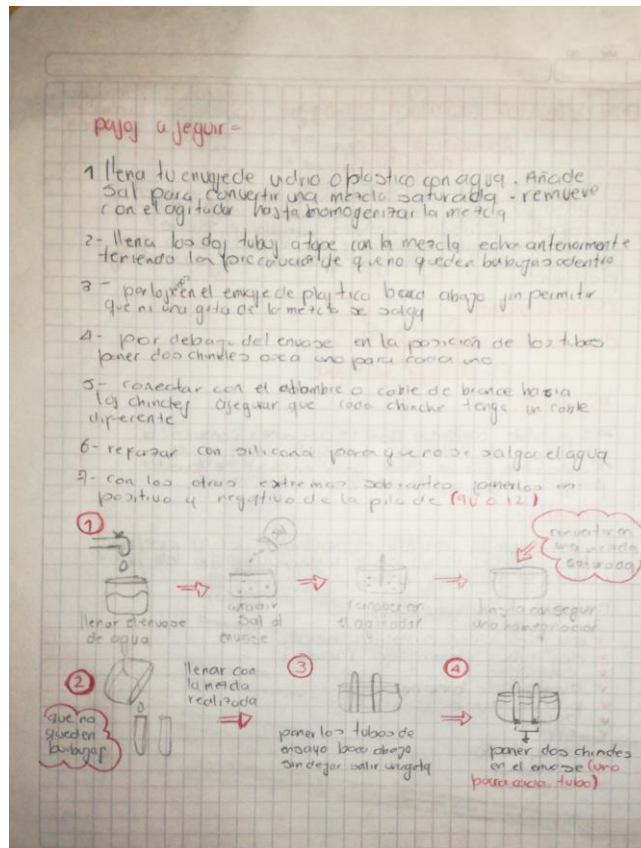 pasos a seguir=
1 llena tu envase de vidrio o plastico con agua. Añade
sal para convertir una mezcla saturada - remueve
con el agitador hasta homogenizar la mezcla
2- llena los dos tubos a tope con la mezcla echa anteriormente
teniendo la precaución de que no queden bubujas adentro
3 - ponlos en el envase de plastico boca abajo sin permitir
que ni una gota de la mezcla se salga
4- por debajo del envase en la posición de los tubos
poner dos chinches osea uno para cada uno
5- conectar con el alambre o cable de bronce hacia
los chinches asegurar que cada chinche tenga un cable
diferente
6- repasar con silicona para que no se salga el agua
7- con los otros extremos sobrantes ponerlos en
positivo y negativo de la pila de (9v o 12)
1
llenar el envase
de agua
sal
añadir
sal al
envase
remover con
el agitador
convertir en
una mezcla
saturada
hasta conseguir
una
2
que no
queden
bubujas
llenar con
la mezcla
realizada
3
poner los tubos de
ensayo boca abajo
sin dejar salir una gota
4
poner dos chinches
en el envase (uno
para cada tubo)